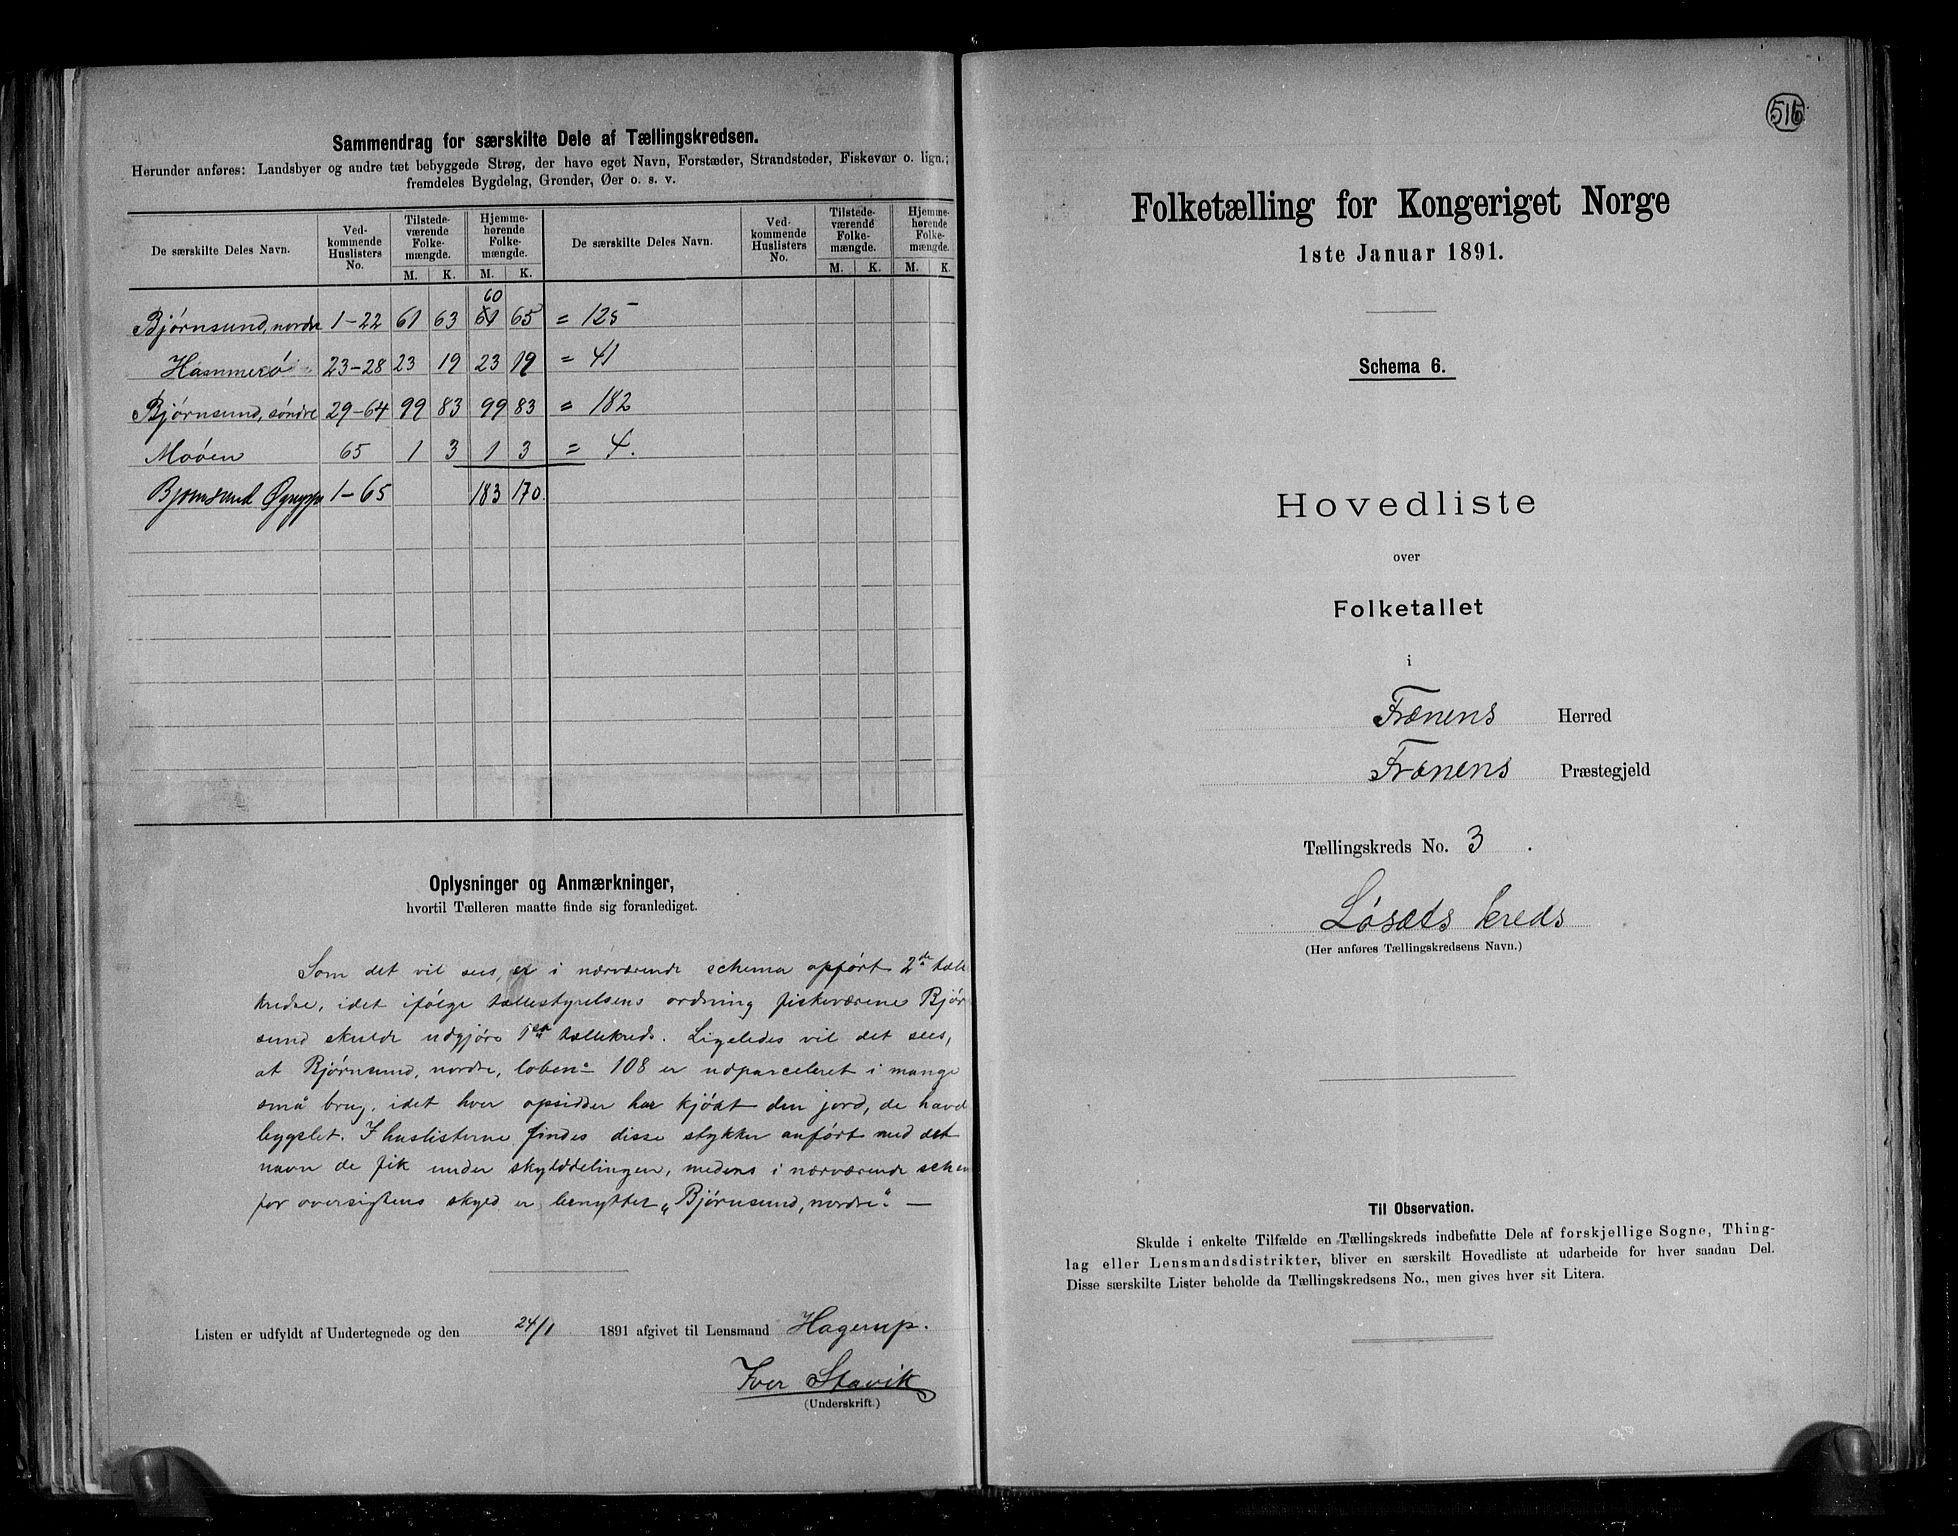 Sammendrag for særskilte Dele af Tællingskredsen.
Herunder anføres: Landsbyer og andre tæt bebyggede Strøg, der have eget Navn, Forstæder, Strandsteder, Fiskevær o. lign.;
fremdeles Bygdelag, Grender, Øer o. s. v.
De særskilte Deles Navn. Ved-kommende Huslisters No. Tilstede-værende Folke-mængde. Hjemme-hørende Folke-mængde. De særskilte Deles Navn. Ved-kommende Huslisters No. Tilstede-værende Folke-mængde. Hjemme-hørende Folke-mængde.
M. K. M. K. M. K. M. K.
60
Bjørnsund, nordre 1-22 61 63 61 65 = 125
Hammerö 23-28 23 19 23 19 = 41
Bjørnsund, søndre 29-64 99 83 99 83 = 182
Moöen 65 1 3 1 3 = 4.
Bjørnsund 1-65 183 170.
Oplysninger og Anmærkninger,
hvortil Tælleren maatte finde sig foranlediget.
Som det vil sees, er i nærværende schema opført 2de tælle
kredse, idet ifølge tællestyrelsens ordning fiskeværene Bjør
sund skulde udgjøre 1en tællekreds. Ligeledes vil det sees,
at Bjørnsund, nordre, löbene 108 er udparceleret i mange
små brug, idet hver opsidder har kjöbt den jord, de havde
bygslet. I huslisterne findes disse stykker anført med det
navn de fik under skylddelingen, medens i nærværende schem
for oversigtens skyld er benyttet „Bjørnsund, nordre“. —
Listen er udfyldt af Undertegnede og den 24/1 1891 afgivet til Lensmand Hagerup.
Iver Stavik
(Underskrift.)
516
Folketælling for Kongeriget Norge
1ste Januar 1891.
Schema 6.
Hovedliste
over
Folketallet
i
Frænens Herred
Frænens Præstegjeld
Tællingskreds No. 3.
Løsæts kreds
(Her anføres Tællingskredsens Navn.)
Til Observation.
Skulde i enkelte Tilfælde en Tællingskreds indbefatte Dele af forskjellige Sogne, Thing-
lag eller Lensmandsdistrikter, bliver en særskilt Hovedliste at udarbeide for hver saadan Del.
Disse særskilte Lister beholde da Tællingskredsens No., men gives hver sit Litera.